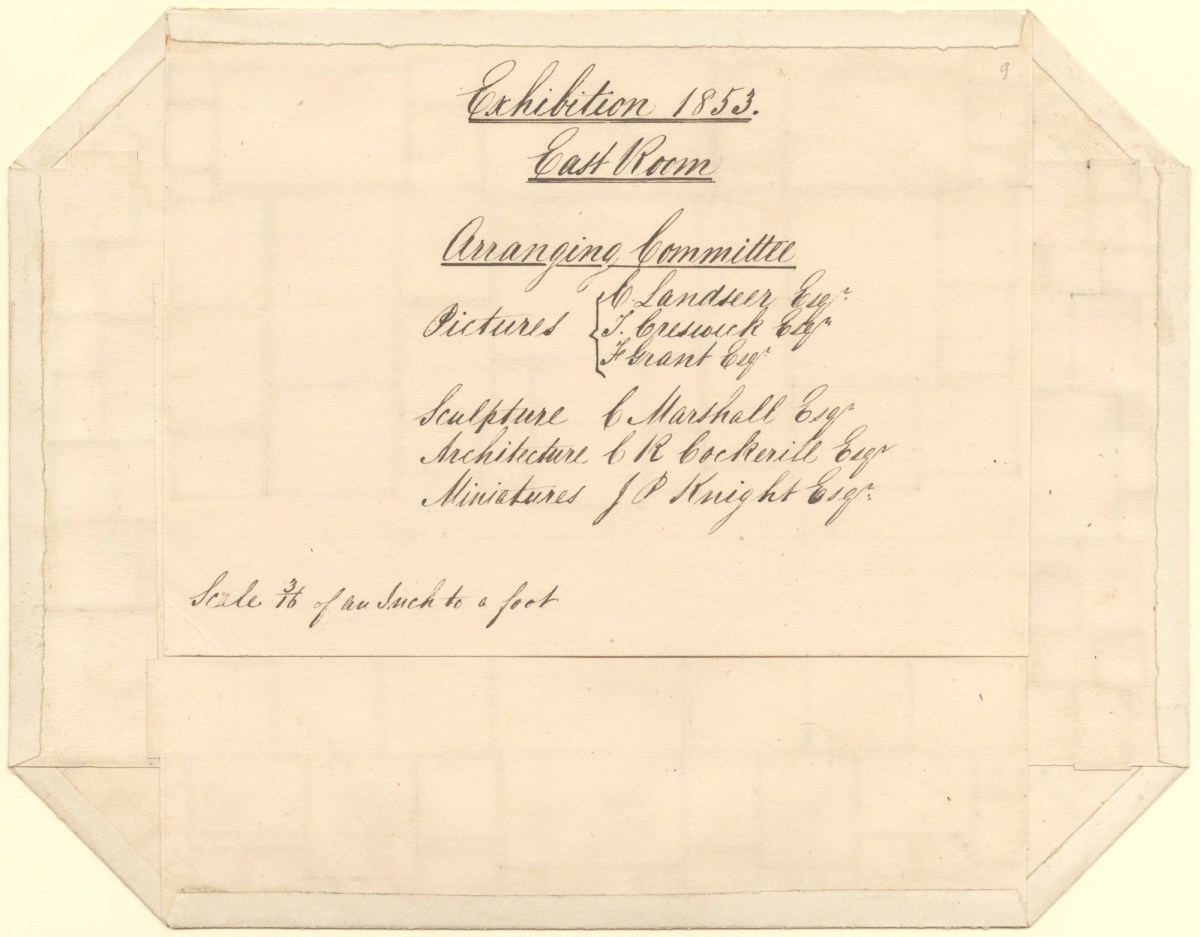 9
Exhibition 1853.
East Room
Arranging Committee
Pictures { C. Landseer Esqr.
T. Creswick Esqr
F Grant Esqr
Sculpture C Marshall Esqr
Architecture C R Cockerill Esqr
Miniatures J P Knight Esqr.
Scale 3/16 of an Inch to a foot